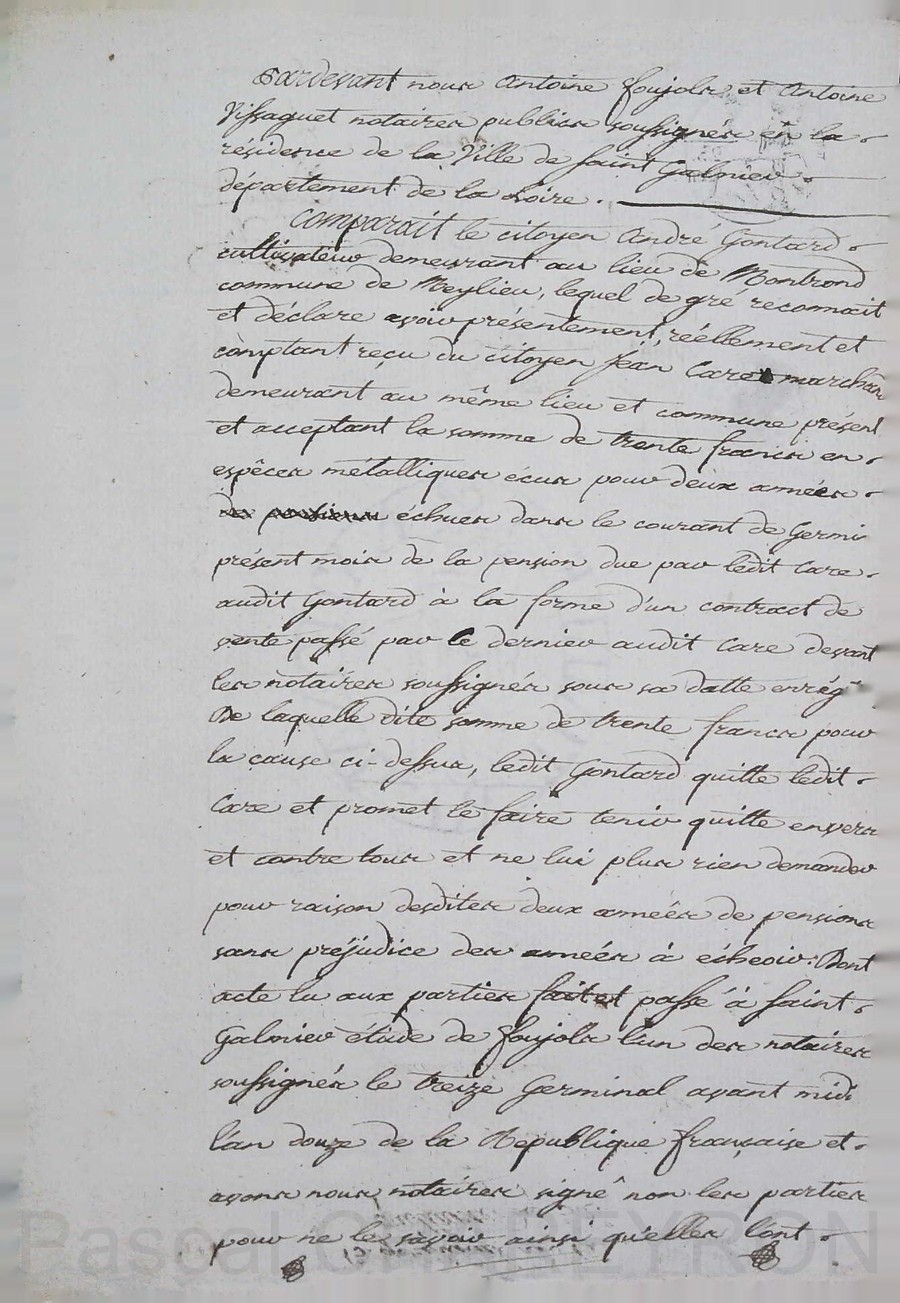 Pardevant nous Antoine foujols et Antoine
Vissaguet notaires publics soussignés en la
résidence de la Ville de saint Galmier
département de la Loire.
Comparait le citoyen André Gontard
cultivateur demeurant au lieu de Montrond
commune de Meylieu, lequel de gré reconnait
et déclare avoir présentement, réellement et
comptant reçu du citoyen Jean Care marchand
demeurant au même lieu et commune présent
et acceptant la somme de trente francs en
espèces métalliques écus pour deux années
échues dans le courant de Germi
présent mois de la pension due par ledit Care
audit Gontard à la forme d'un contract de
vente passé par ce dernier audit Care devant
les notaires soussignés sous sa datte enrég
De laquelle dite somme de trente francs pour
la cause ci-dessus, ledit Gontard quitte ledit
Care et promet le faire tenir quitte envers
et contre tous et ne lui plus rien demander
pour raison desdites deux années de pensions
sans préjudice des années à échéoir. Dont
acte lu aux parties fait et passé à saint
Galmier étude de foujols l'un des notaires
soussignés le treize Germinal avant midi
l'an douze de la Republique française et
avons nous notaires signé non les parties
pour ne le savoir ainsi qu'elles l'ont